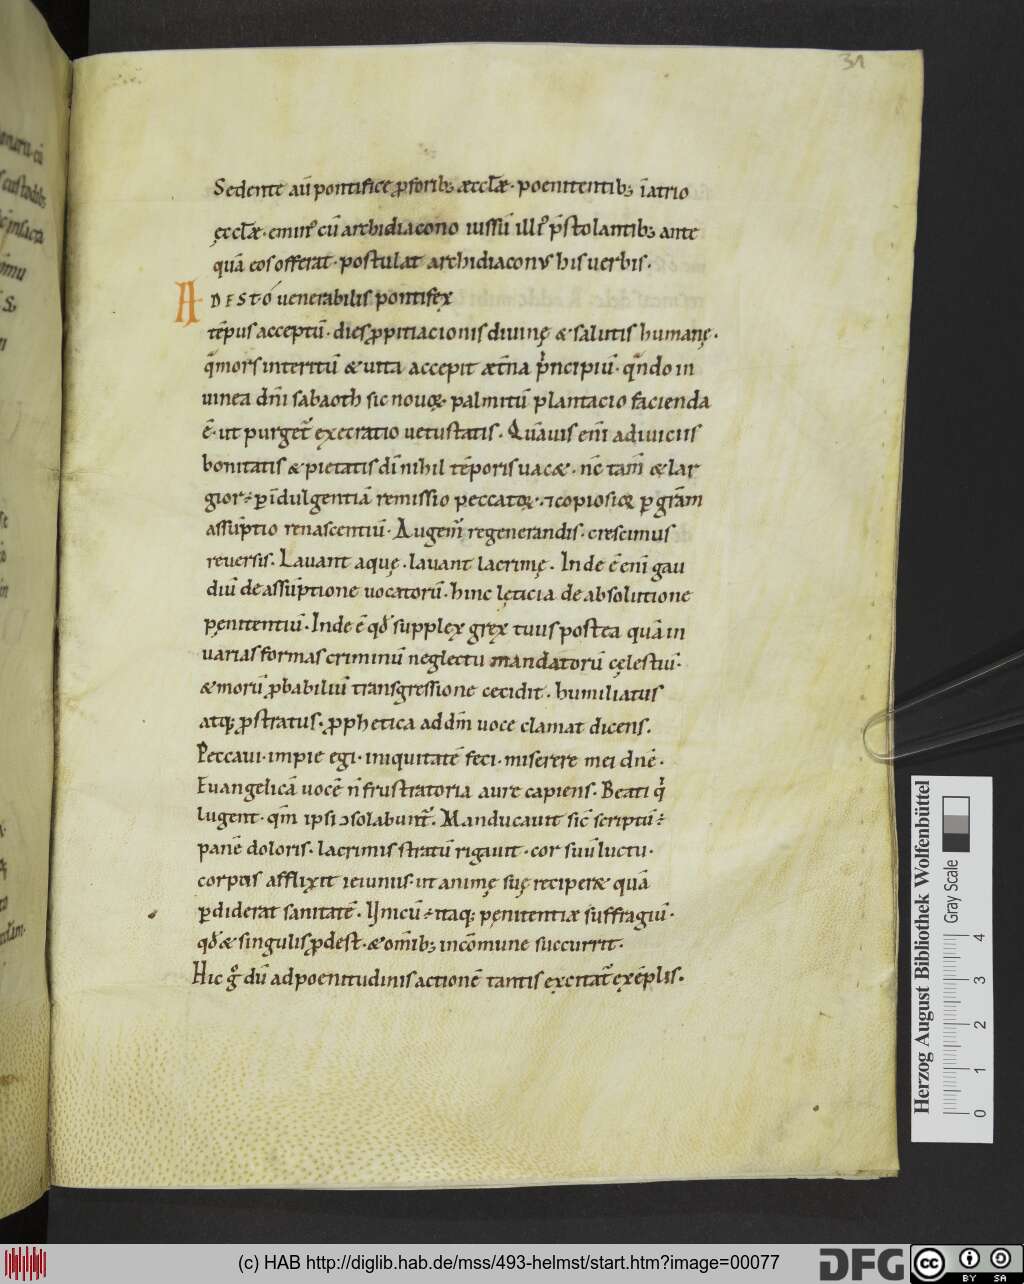 31
Sedente aū pontifice ꝓ forib; æccl̄æ· poenitentib; ī atrio
ęccl̄æ· eminꝰ cū archidiacono iussū illiꝰ p̄stolantib; ante
quā eos offerat· postulat archidiaconus his uerbis.
ADESTO uenerabilis pontifex
tēpus acceptū· dies ꝓpitiacionis diuinę & salutis humanę.
qͣ mors interitū & uita accepit æt̄na pͥncipiū· qͣndo in
uinea dn̄i sabaoth sic nouoꝝ· palmitū plantacio facienda
ē· ut purget᷑ execratio uetustatis. Quāuis eni̅ a diuiciis
bonitatis & pietatis dī nihil tēporis uac&· nc̄ tam̄ & lar
gior ÷ ꝑ īdulgentiā remissio peccatoꝝ· ⁊ copiosior ꝑ gr̄am
assūptio renascentiū· Augem᷑ regenerandis· crescimus
reuersis. Lauant aquę· lauant lacrimę. Inde ē eni̅ gau
diū de assūptione uocatorū· hinc lęticia de absolutione
pęnitentiū· Inde ē qđ supplex grex tuus postea quā in
uarias formas criminū neglectu mandatorū cęlestiū·
& morū ꝓbabiliū transgressione cecidit· humiliatus
atq; ꝓstratus· ꝓphetica ad dm̄ uoce clamat dicens.
Peccaui· impie egi· iniquitatē feci· miserere mei dn̄e·
Euangelicā uocē n̄ frustratoria aure capiens. Beati qͥ
lugent· qm̄ ipsi ɔsolabunt᷑. Manducauit sic̄ scriptū ÷
panē doloris· lacrimis stratū rigauit· cor suū luctu·
corpus afflixit ieiuniis· ut animę suę reciper& quā
ꝑdiderat sanitatē. Unicū ÷ itaq; pęnitentiæ suffragiū·
qđ & singulis ꝓdest· & omīb; in cōmune succurrit·
Hic gͦ dū ad poenitudinis actionē tantis excitat᷑ exēplis.
Herzog August Bibliothek Wolfenbüttel
Gray Scale
0 1 2 3 4
(c) HAB http://diglib.hab.de/mss/493-helmst/start.htm?image=00077
DFG
cc BY SA